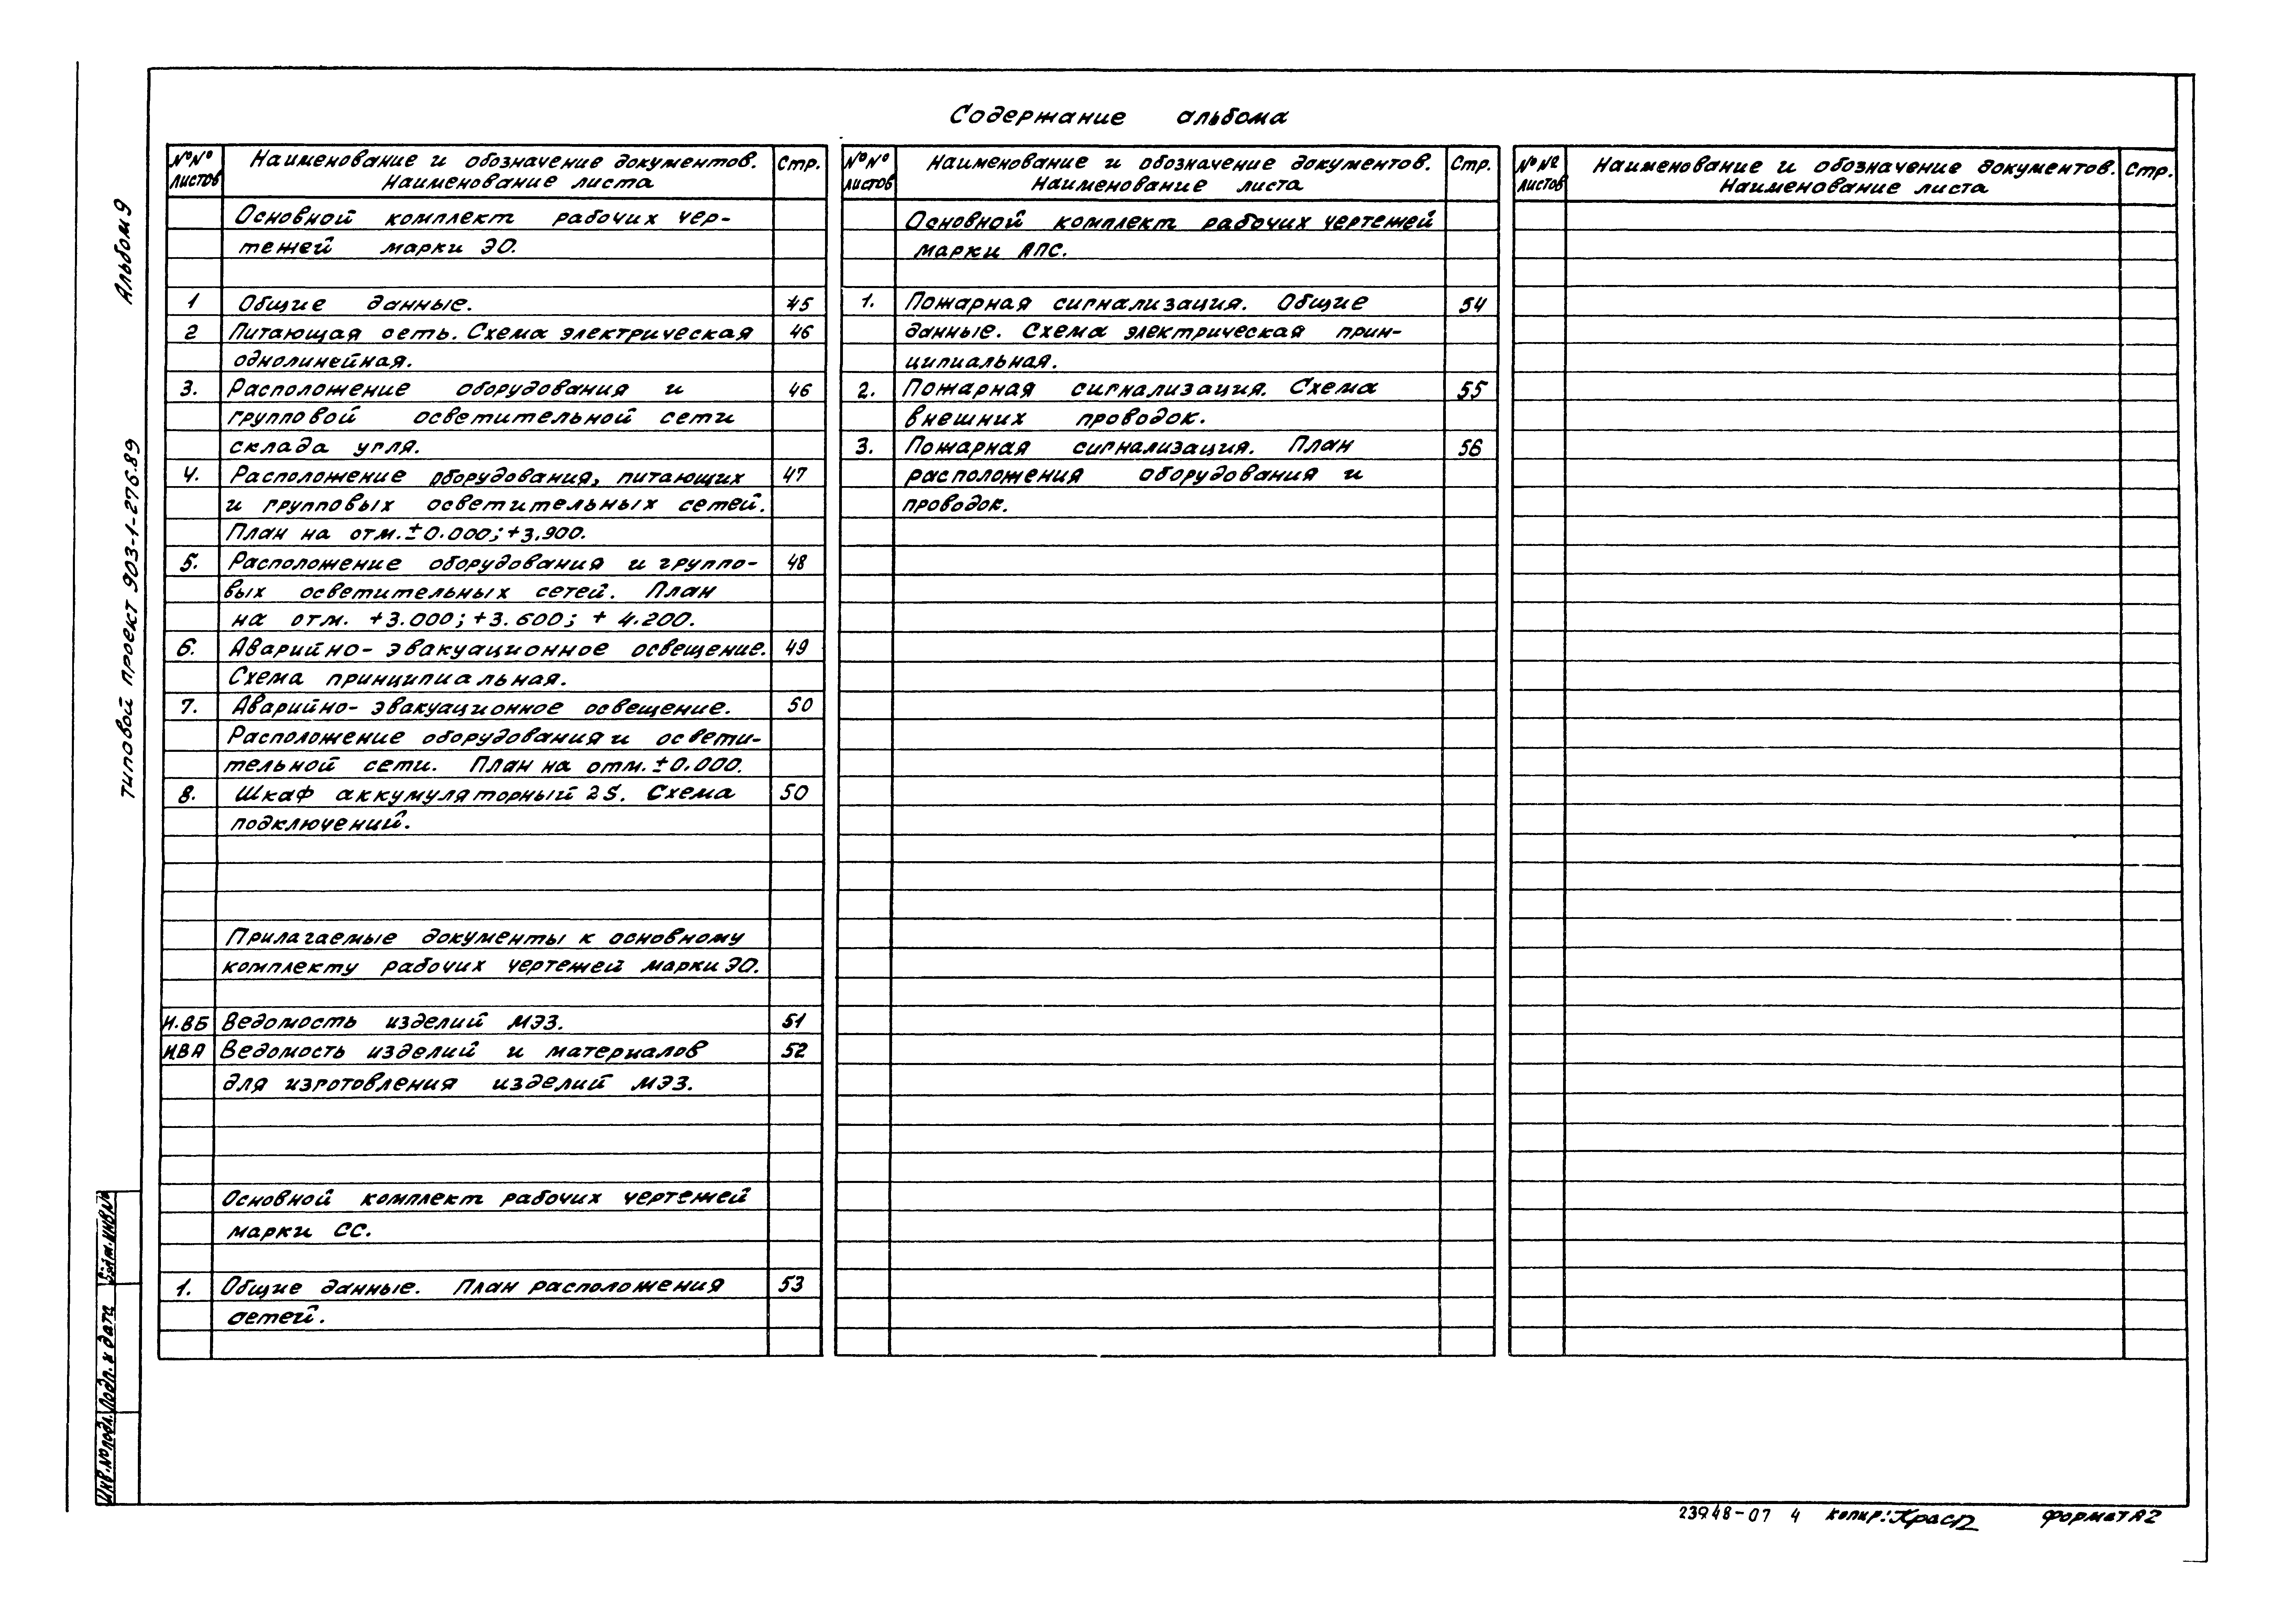 Содержание альбома
№№ листов
Наименование и обозначение документов. Наименование листа
Стр.
Основной комплект рабочих чер-
тежей марки ЭО.
1 Общие данные. 45
2 Питающая сеть. Схема электрическая 46
однолинейная.
3. Расположение оборудования и 46
групповой осветительной сети
склада угля.
4. Расположение оборудования, питающих 47
и групповых осветительных сетей.
План на отм. ±0.000; +3.900.
5. Расположение оборудования и группо- 48
вых осветительных сетей. План
на отм. +3.000; +3.600; + 4.200.
6. Аварийно-эвакуационное освещение. 49
Схема принципиальная.
7. Аварийно-эвакуационное освещение. 50
Расположение оборудования и освети-
тельной сети. План на отм. ±0.000.
8. Шкаф аккумуляторный 2S. Схема 50
подключений.
Прилагаемые документы к основному
комплекту рабочих чертежей марки ЭО.
И.ВБ Ведомость изделий МЭЗ. 51
ИВА Ведомость изделий и материалов 52
для изготовления изделий МЭЗ.
Основной комплект рабочих чертежей
марки СС.
1. Общие данные. План расположения 53
сетей.
№№ листов
Наименование и обозначение документов. Наименование листа
Стр.
Основной комплект рабочих чертежей
марки АПС.
1. Пожарная сигнализация. Общие 54
данные. Схема электрическая прин-
ципиальная.
2. Пожарная сигнализация. Схема 55
внешних проводок.
3. Пожарная сигнализация. План 56
расположения оборудования и
проводок.
№№ листов
Наименование и обозначение документов. Наименование листа
Стр.
Альбом 9
типовой проект 903-1-276.89
Взам. инв №
Подп. и дата
Инв. № подл.
23948-07 4 копир: Крас формат А2